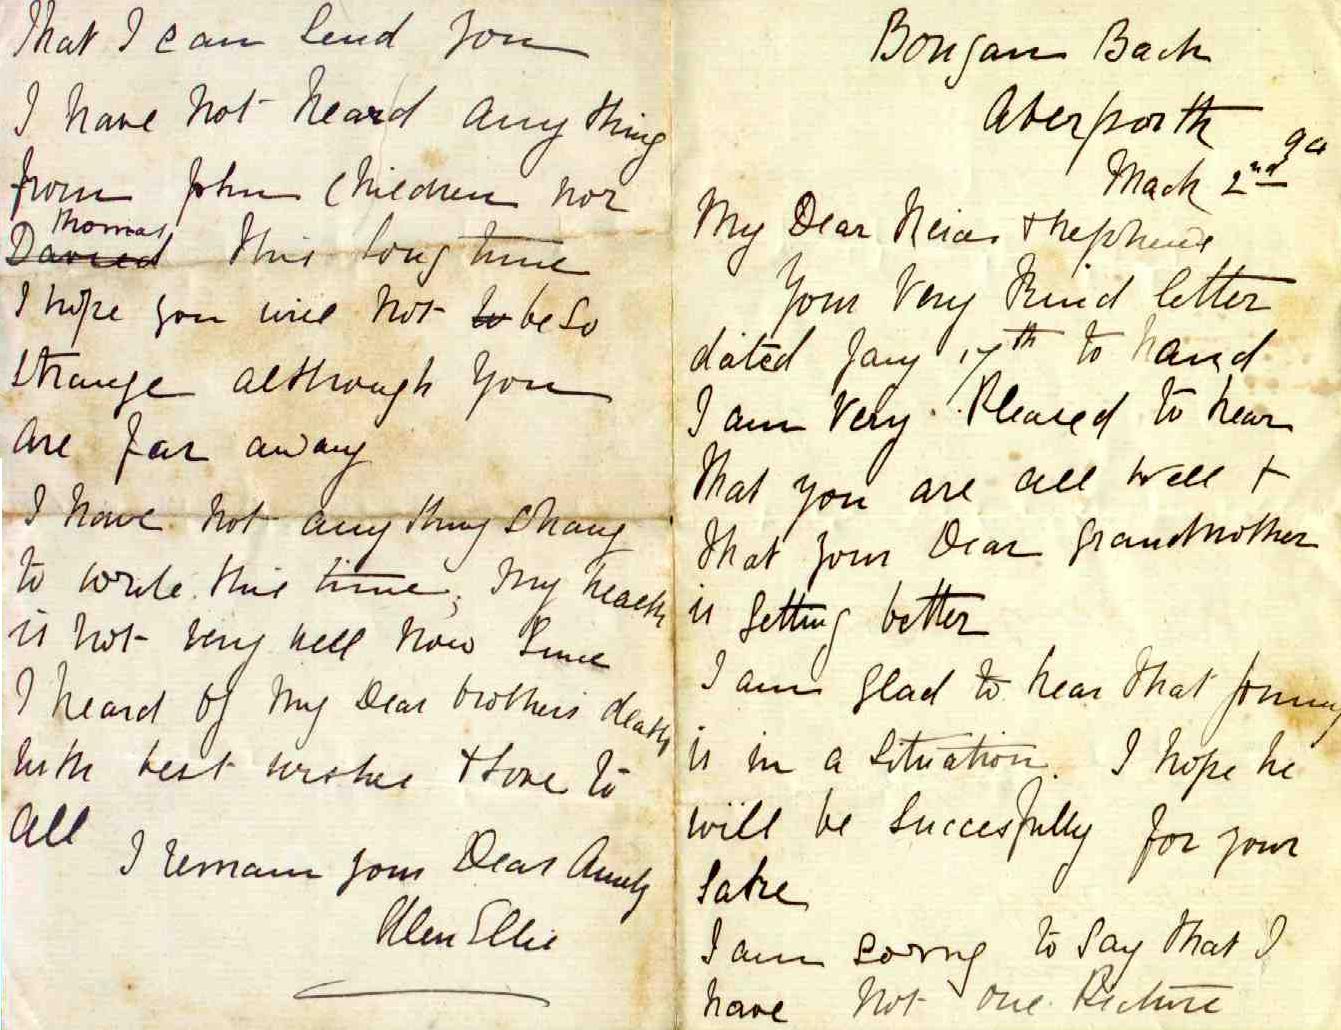 Bongam Bach
Aberporth
Mach 2nd
My Dear Neices & Nephews
Your Very Kind letter
dated Jany 17th to hand
I am Very Pleased to hear
that you are all well &
that your Dear grandmother
is getting better
I am glad to hear that Jonny
is in a Situation. I hope he
will be Succesfully for your
Sake
I am sorry to Say that I
have not one Picture
That I can Send you
I have not heard any thing
from John Children nor
Thomas
Davied this long time
I hope you will not to be So
Strange although you
are far away
I have not any thing Strang
to write this time, My heath
is not very well now Since
I heard of My Dear brothers death
With best wishes & Love to
all
I remain your Dear Aunty
Ellen Ellis